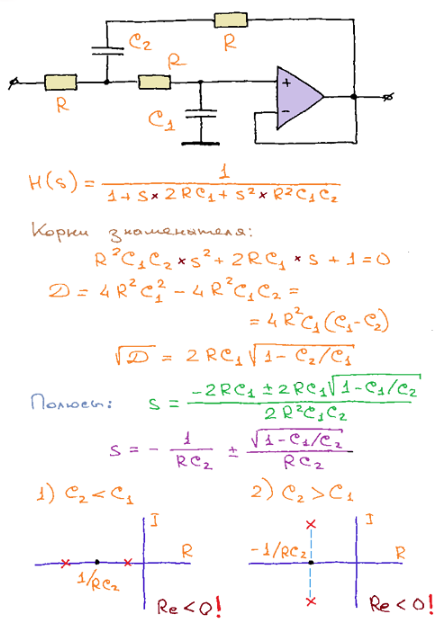 C₂
R
R
R
C₁
+
-
H(s) = 1 / (1 + s × 2RC₁ + s² × R²C₁C₂)
Корни знаменателя:
R²C₁C₂ × s² + 2RC₁ × s + 1 = 0
D = 4R²C₁² - 4R²C₁C₂ =
= 4R²C₁(C₁-C₂)
√D = 2RC₁√(1-C₂/C₁)
Полюсы: s = (-2RC₁ ± 2RC₁√(1-C₁/C₂)) / (2R²C₁C₂)
s = - 1/(RC₂) ± √(1-C₁/C₂)/(RC₂)
1) C₂ < C₁ 2) C₂ > C₁
I I
R -1/RC₂ R
1/RC₂
Re<0! Re<0!